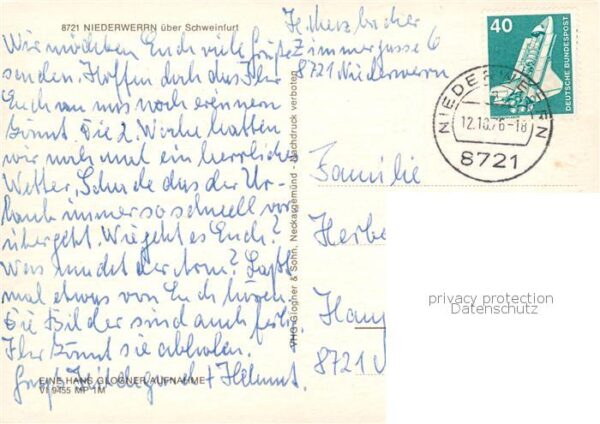 8721 NIEDERWERRN über Schweinfurt
Wir möchten Euch viele Grüße
senden. Hoffen doch das Ihr
Euch an uns noch erinnern
könnt. Die 2. Woche hatten
wir noch mal ein herrliches
Wetter, Schade das der Ur-
laub immer so schnell vor-
übergeht. Wie geht es Euch?
Was macht der Arm? Laßt
mal etwas von Euch hören
Die Bilder sind auch fertig.
Ihr könnt sie abholen.
Gruß Hildegard + Helmut.
EINE HANS GLOGNER AUFNAHME
VI 9455 MP 1M
VHG Glogner & Sohn, Neckargemünd - Nachdruck verboten
H. Herzbacher
Zimmergasse 6
8721 Niederwerrn
40
DEUTSCHE BUNDESPOST
NIEDERWERRN
12.10.76-18
8721
Familie
Herbe
Hau
8721
privacy protection
Datenschutz